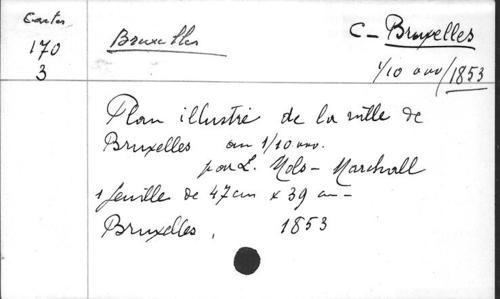 Cartes
170
3
Bruxelles
C - Bruxelles
1/10 000/1853
Plan illustré de la ville de
Bruxelles au 1/10 000.
par L. Mols - Marchall
1 feuille de 47cm x 39 cm -
Bruxelles, 1853